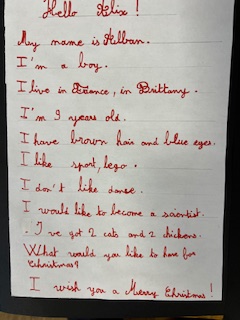 Hello Alix !
My name is Alban.
I'm a boy.
I live in France, in Brittany.
I'm 9 years old.
I have brown hair and blue eyes.
I like sport, lego.
I don't like danse.
I would like to become a scientist.
I've got 2 cats and 2 chickens.
What would you like to have for
Christmas?
I wish you a Merry Christmas !